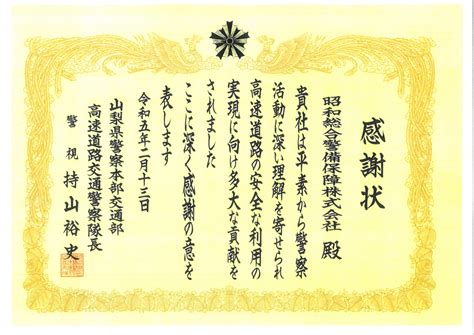 感謝状
昭和総合警備保障株式会社 殿
貴社は平素から警察
活動に深い理解を寄せられ
高速道路の安全な利用の
実現に向け多大な貢献を
されました
ここに深く感謝の意を
表します
令和五年二月十三日
山梨県警察本部交通部
高速道路交通警察隊長
警視 持山裕史